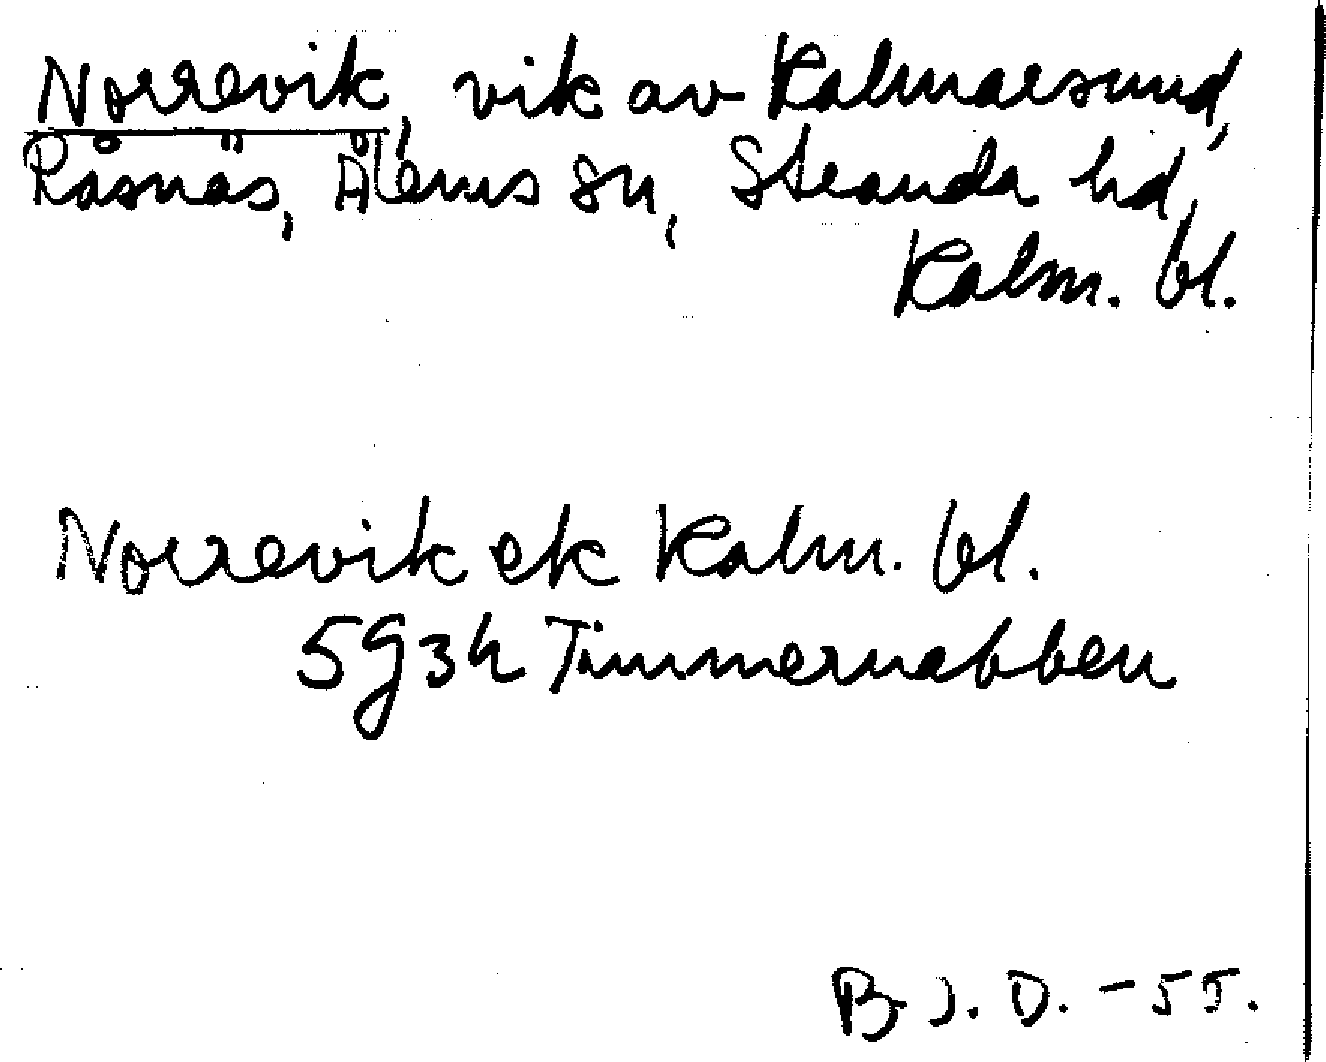 Norrevik, vik av Kalmarsund,
Råsnäs, Ålems sn, Stranda hd,
Kalm. bl.
Norrevik ek Kalm. bl.
5g3h Timmernabben
B.J.D. -55.